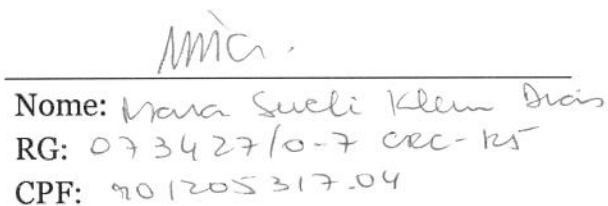 Nome: Mara Sueli Klein Dias
RG: 073427/0-7 CRC-RS
CPF: 901205317.04